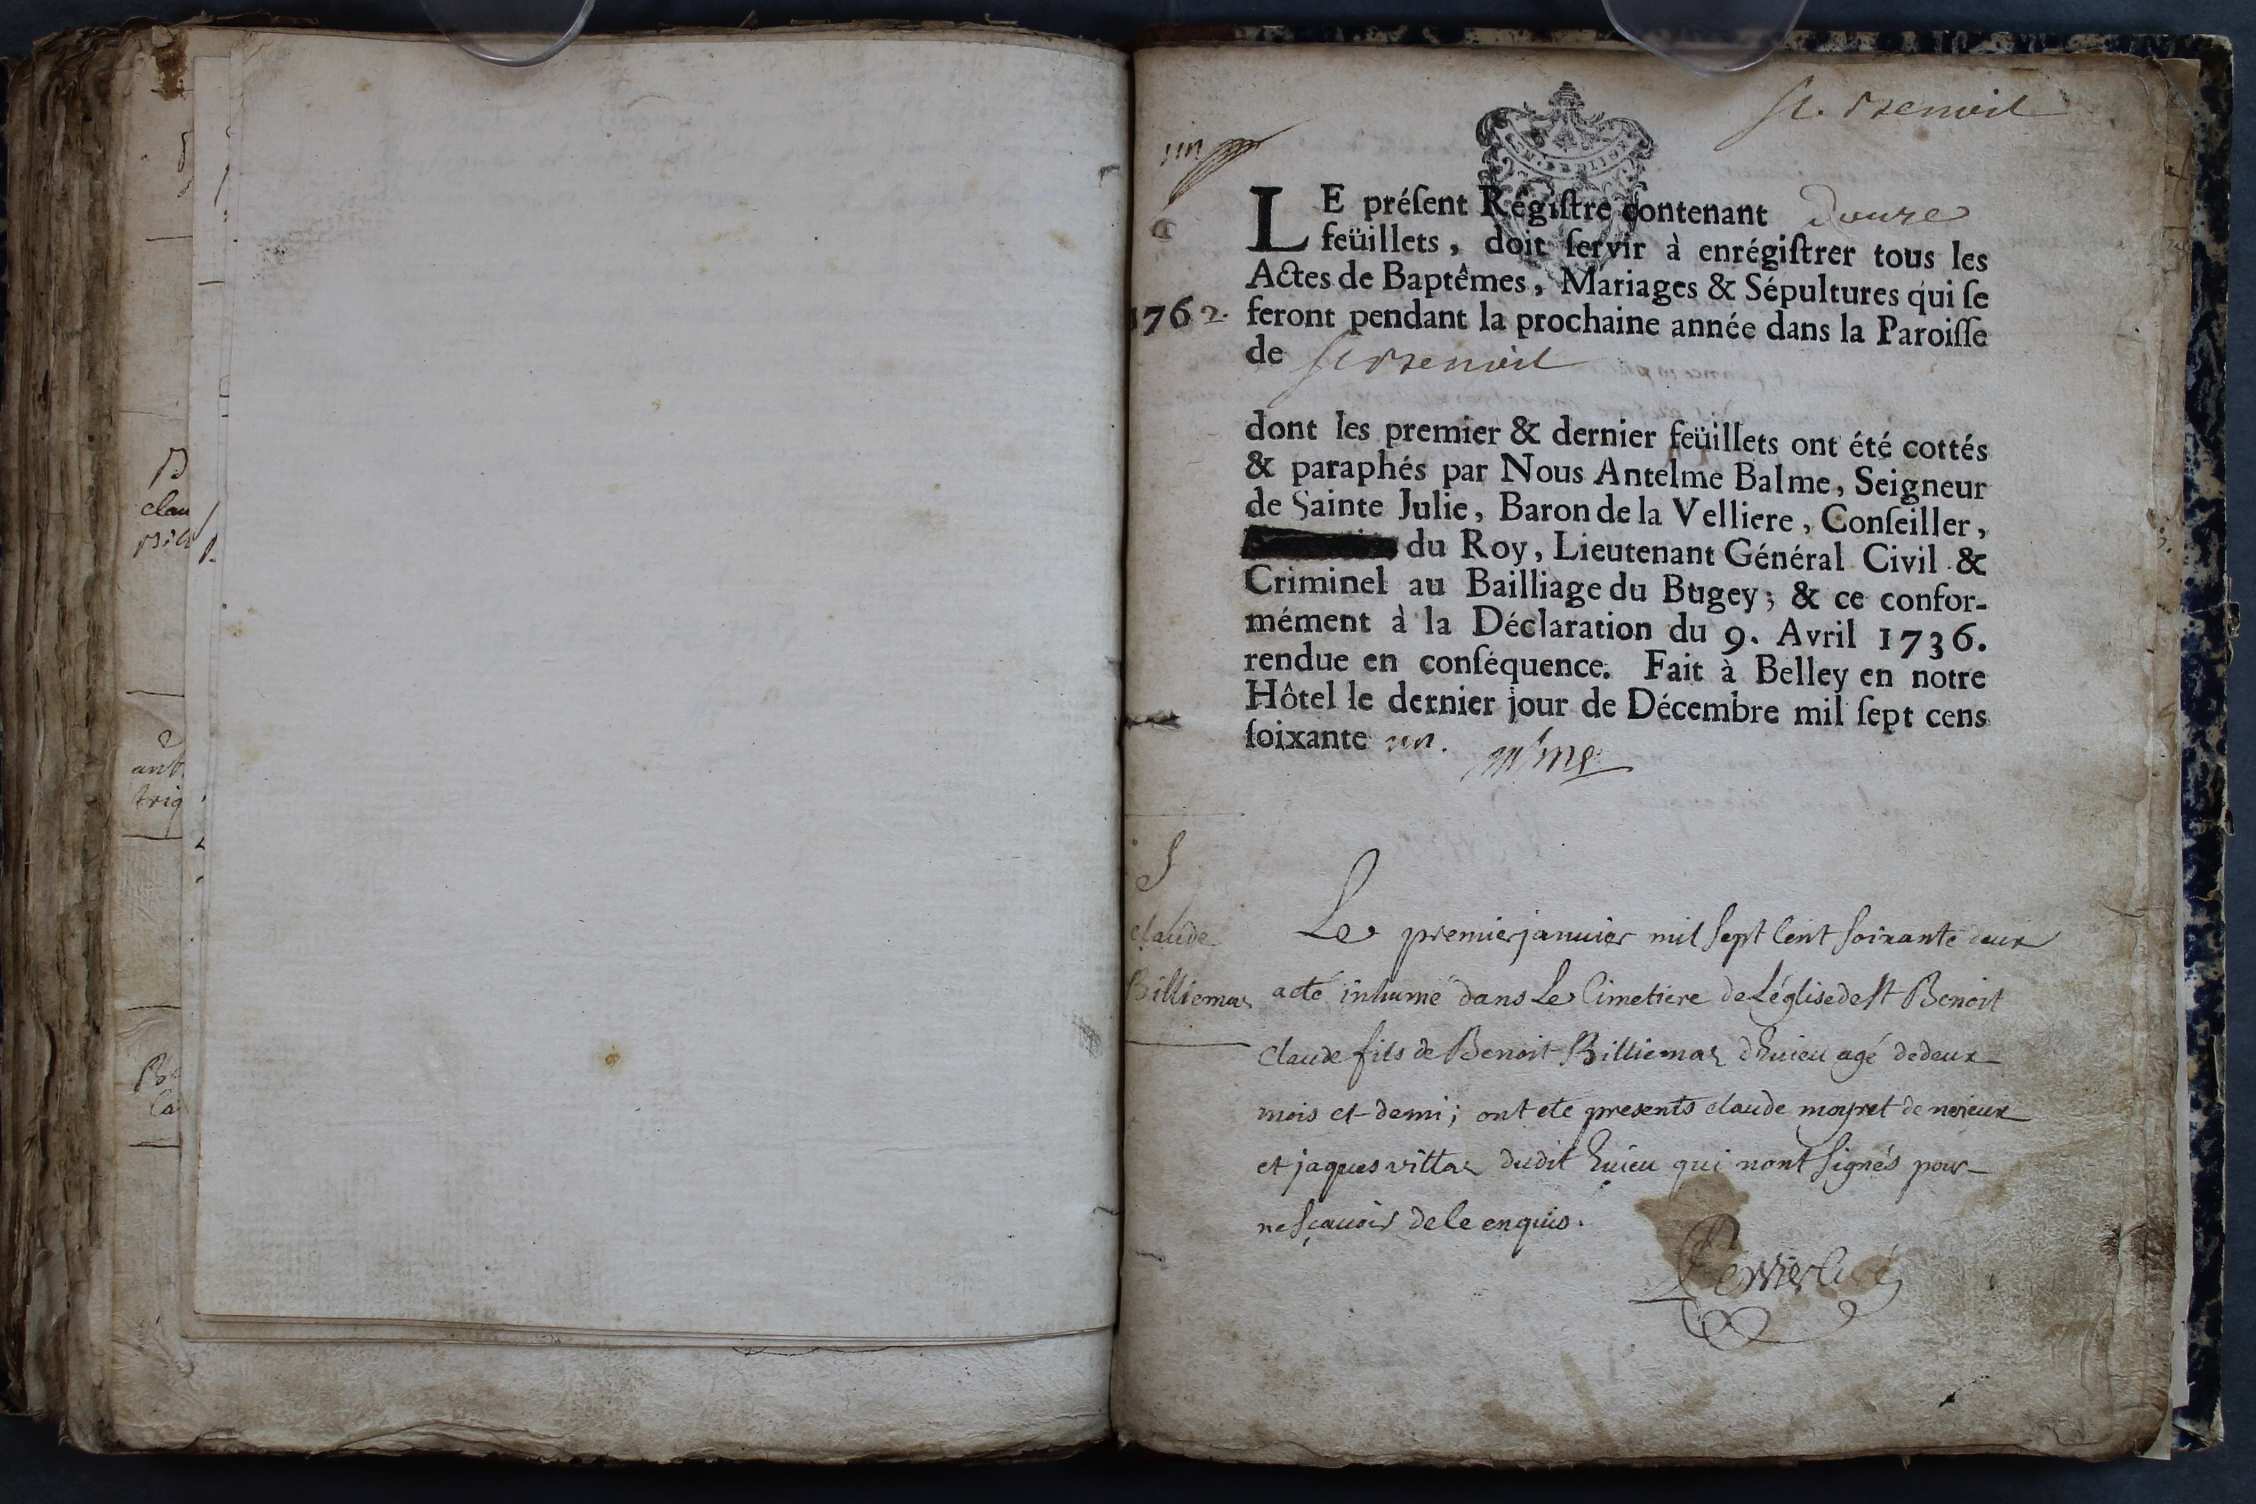 St. Benoit
un
LE préſent Régiſtre contenant Douze
feüillets, doit ſervir à enrégiſtrer tous les
Actes de Baptêmes, Mariages & Sépultures qui ſe
1762. feront pendant la prochaine année dans la Paroiſſe
de St Benoit
dont les premier & dernier feüillets ont été cottés
& paraphés par Nous Antelme Balme, Seigneur
de Sainte Julie, Baron de la Velliere, Conſeiller,
du Roy, Lieutenant Général Civil &
Criminel au Bailliage du Bugey; & ce confor-
mément à la Déclaration du 9. Avril 1736.
rendue en conſéquence. Fait à Belley en notre
Hôtel le dernier jour de Décembre mil ſept cens
ſoixante un.
S
claude
Billiemaz
Le premier janvier mil sept Cent soixante deux
a eté inhumé dans Le Cimetiere de L'église de st Benoit
claude fils de Benoit Billiemaz d'huieu agé de deux
mois et demi; ont eté presents claude moyret de
et jaques villaz dudit huieu qui nont signés pour
ne sçavoir de ce enquis.
Curé